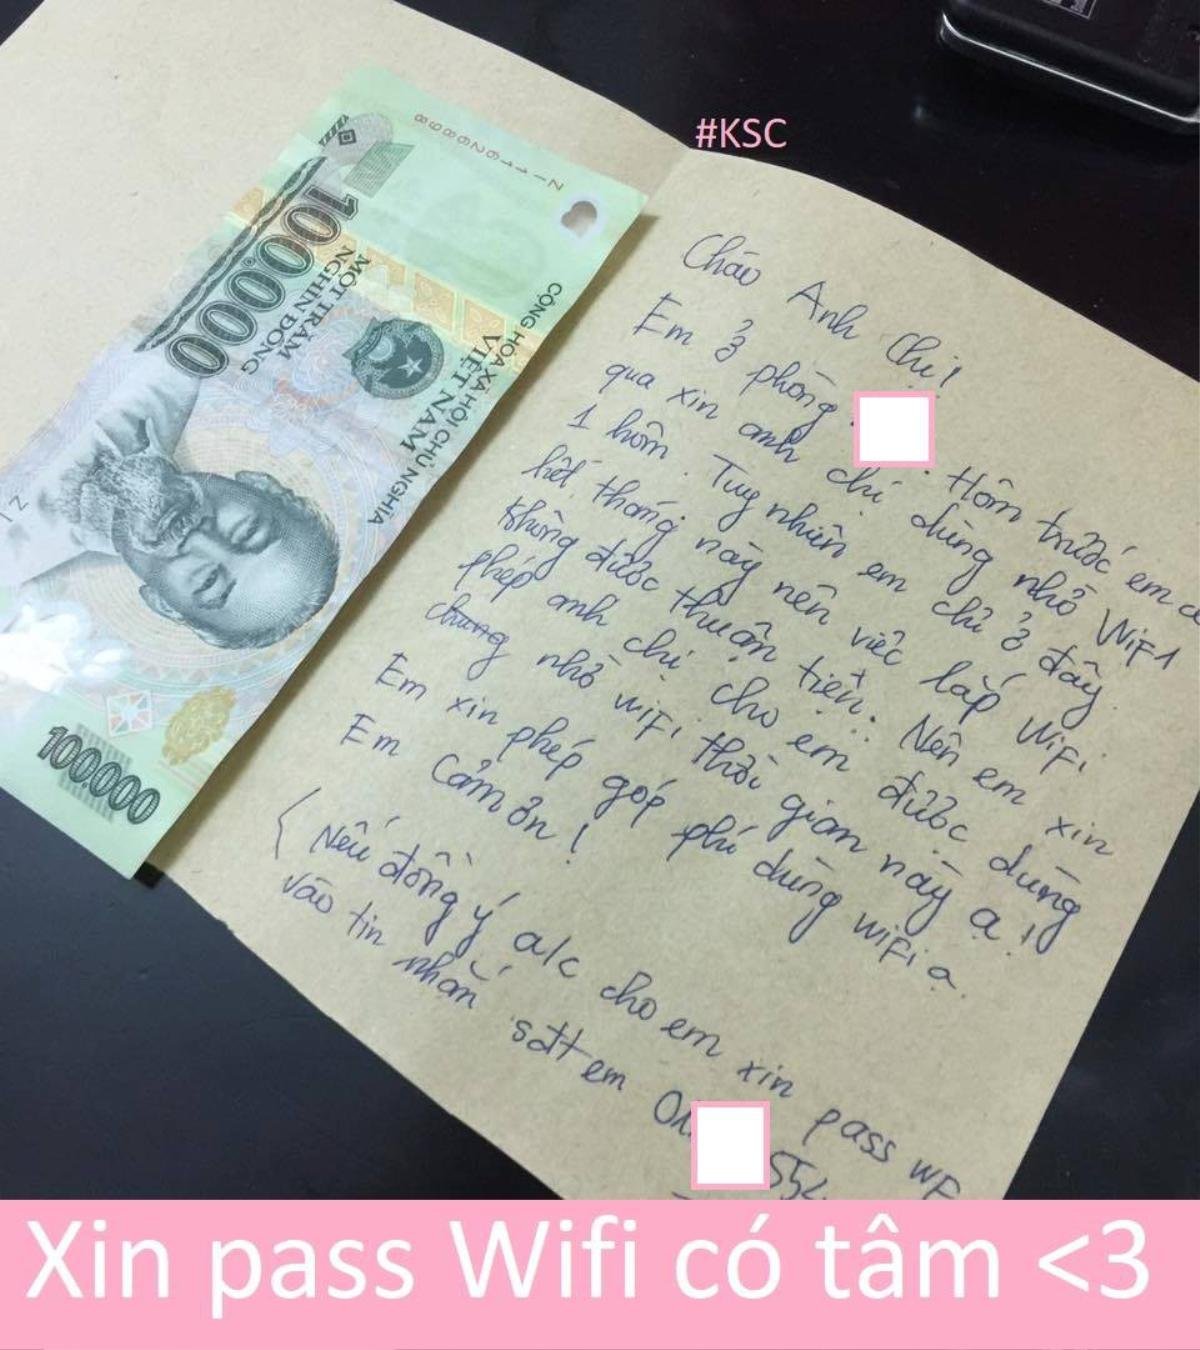 #KSC
Z 11626898
100000
MỘT TRĂM
NGHÌN ĐỒNG
CỘNG HÒA XÃ HỘI CHỦ NGHĨA
VIỆT NAM
100000
Chào Anh Chị!
Em ở phòng . Hôm trước em có
qua xin anh chị dùng nhờ WiF1
1 hôm. Tuy nhiên em chỉ ở đây
hết tháng này nên việc lắp WiFi
không được thuận tiện. Nên em xin
phép anh chị cho em được dùng
chung nhờ wiFi thời gian này ạ!
Em xin phép góp phí dùng wiFi ạ.
Em Cảm ơn!
(Nếu đồng ý a/c cho em xin pass wF
vào tin nhắn sđt em 01 554
Xin pass Wifi có tâm <3